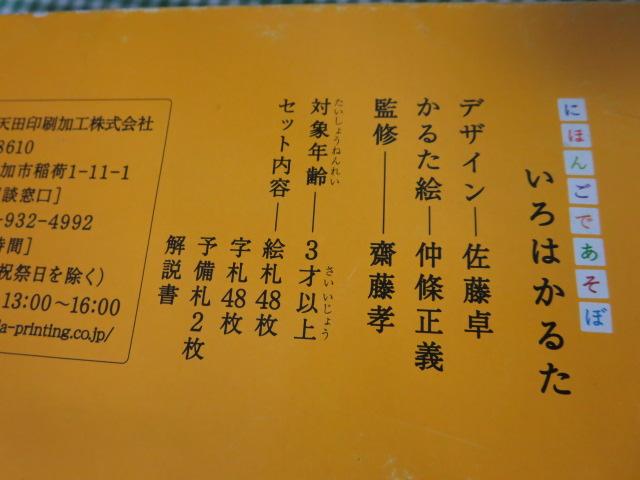 にほんごであそぼ
いろはかるた
デザイン―佐藤卓
かるた絵―仲條正義
監修――齋藤孝
たいしょうねんれい さい いじょう
対象年齢――3才以上
セット内容―絵札48枚
字札48枚
予備札2枚
解説書
天田印刷加工株式会社
8610
加市稲荷1-11-1
談窓口]
-932-4992
時間]
祝祭日を除く)
13:00～16:00
a-printing.co.jp/